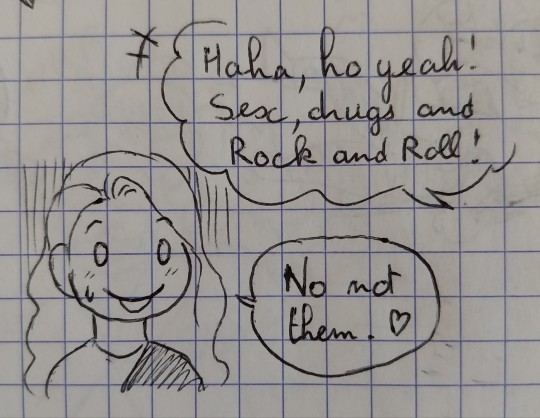 7
Haha, ho yeah!
Sex, drugs and
Rock and Roll!
No not
them. ♡